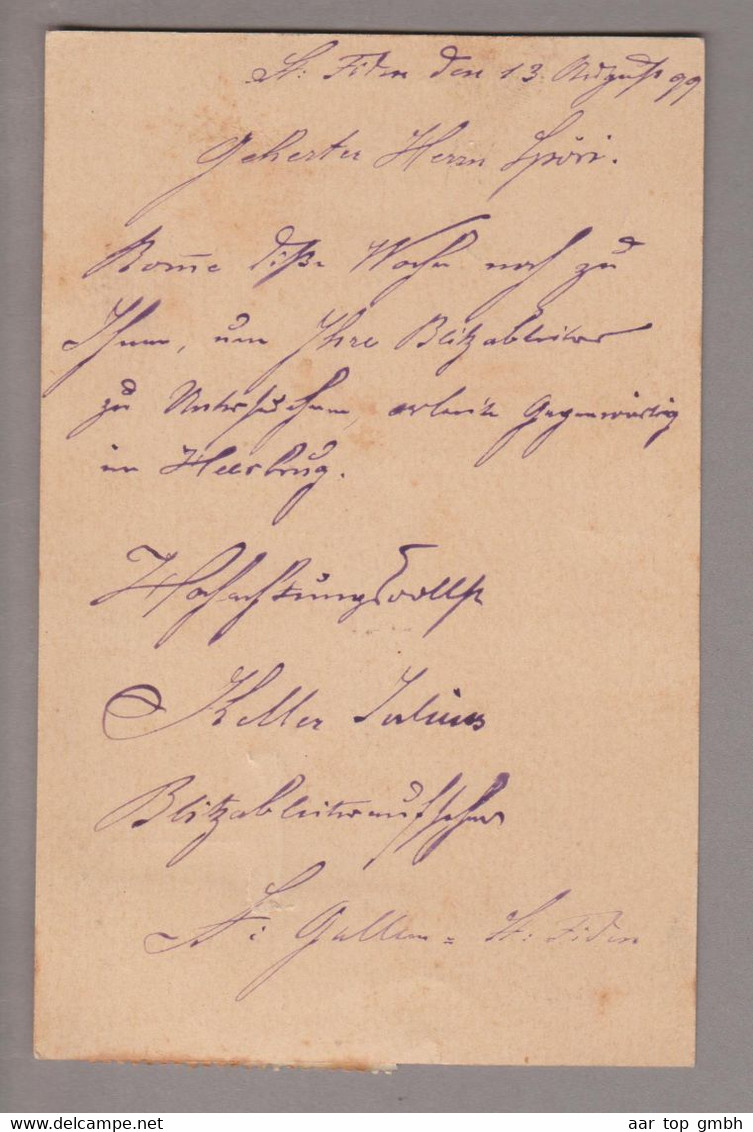 St: Fiden den 13. August 99
Geherter Herrn Spöri.
Kom̄e diße Woche noch zu
Ihnen, um Ihre Blitzableiter
zu Untersuchen, arbeite Gegenwärtig
in Heerbrug.
Hochachtungsvollst
Keller Julius
Blitzableiteraufseher
St: Gallen = St: Fiden
www.delcampe.net
aar top gmbh